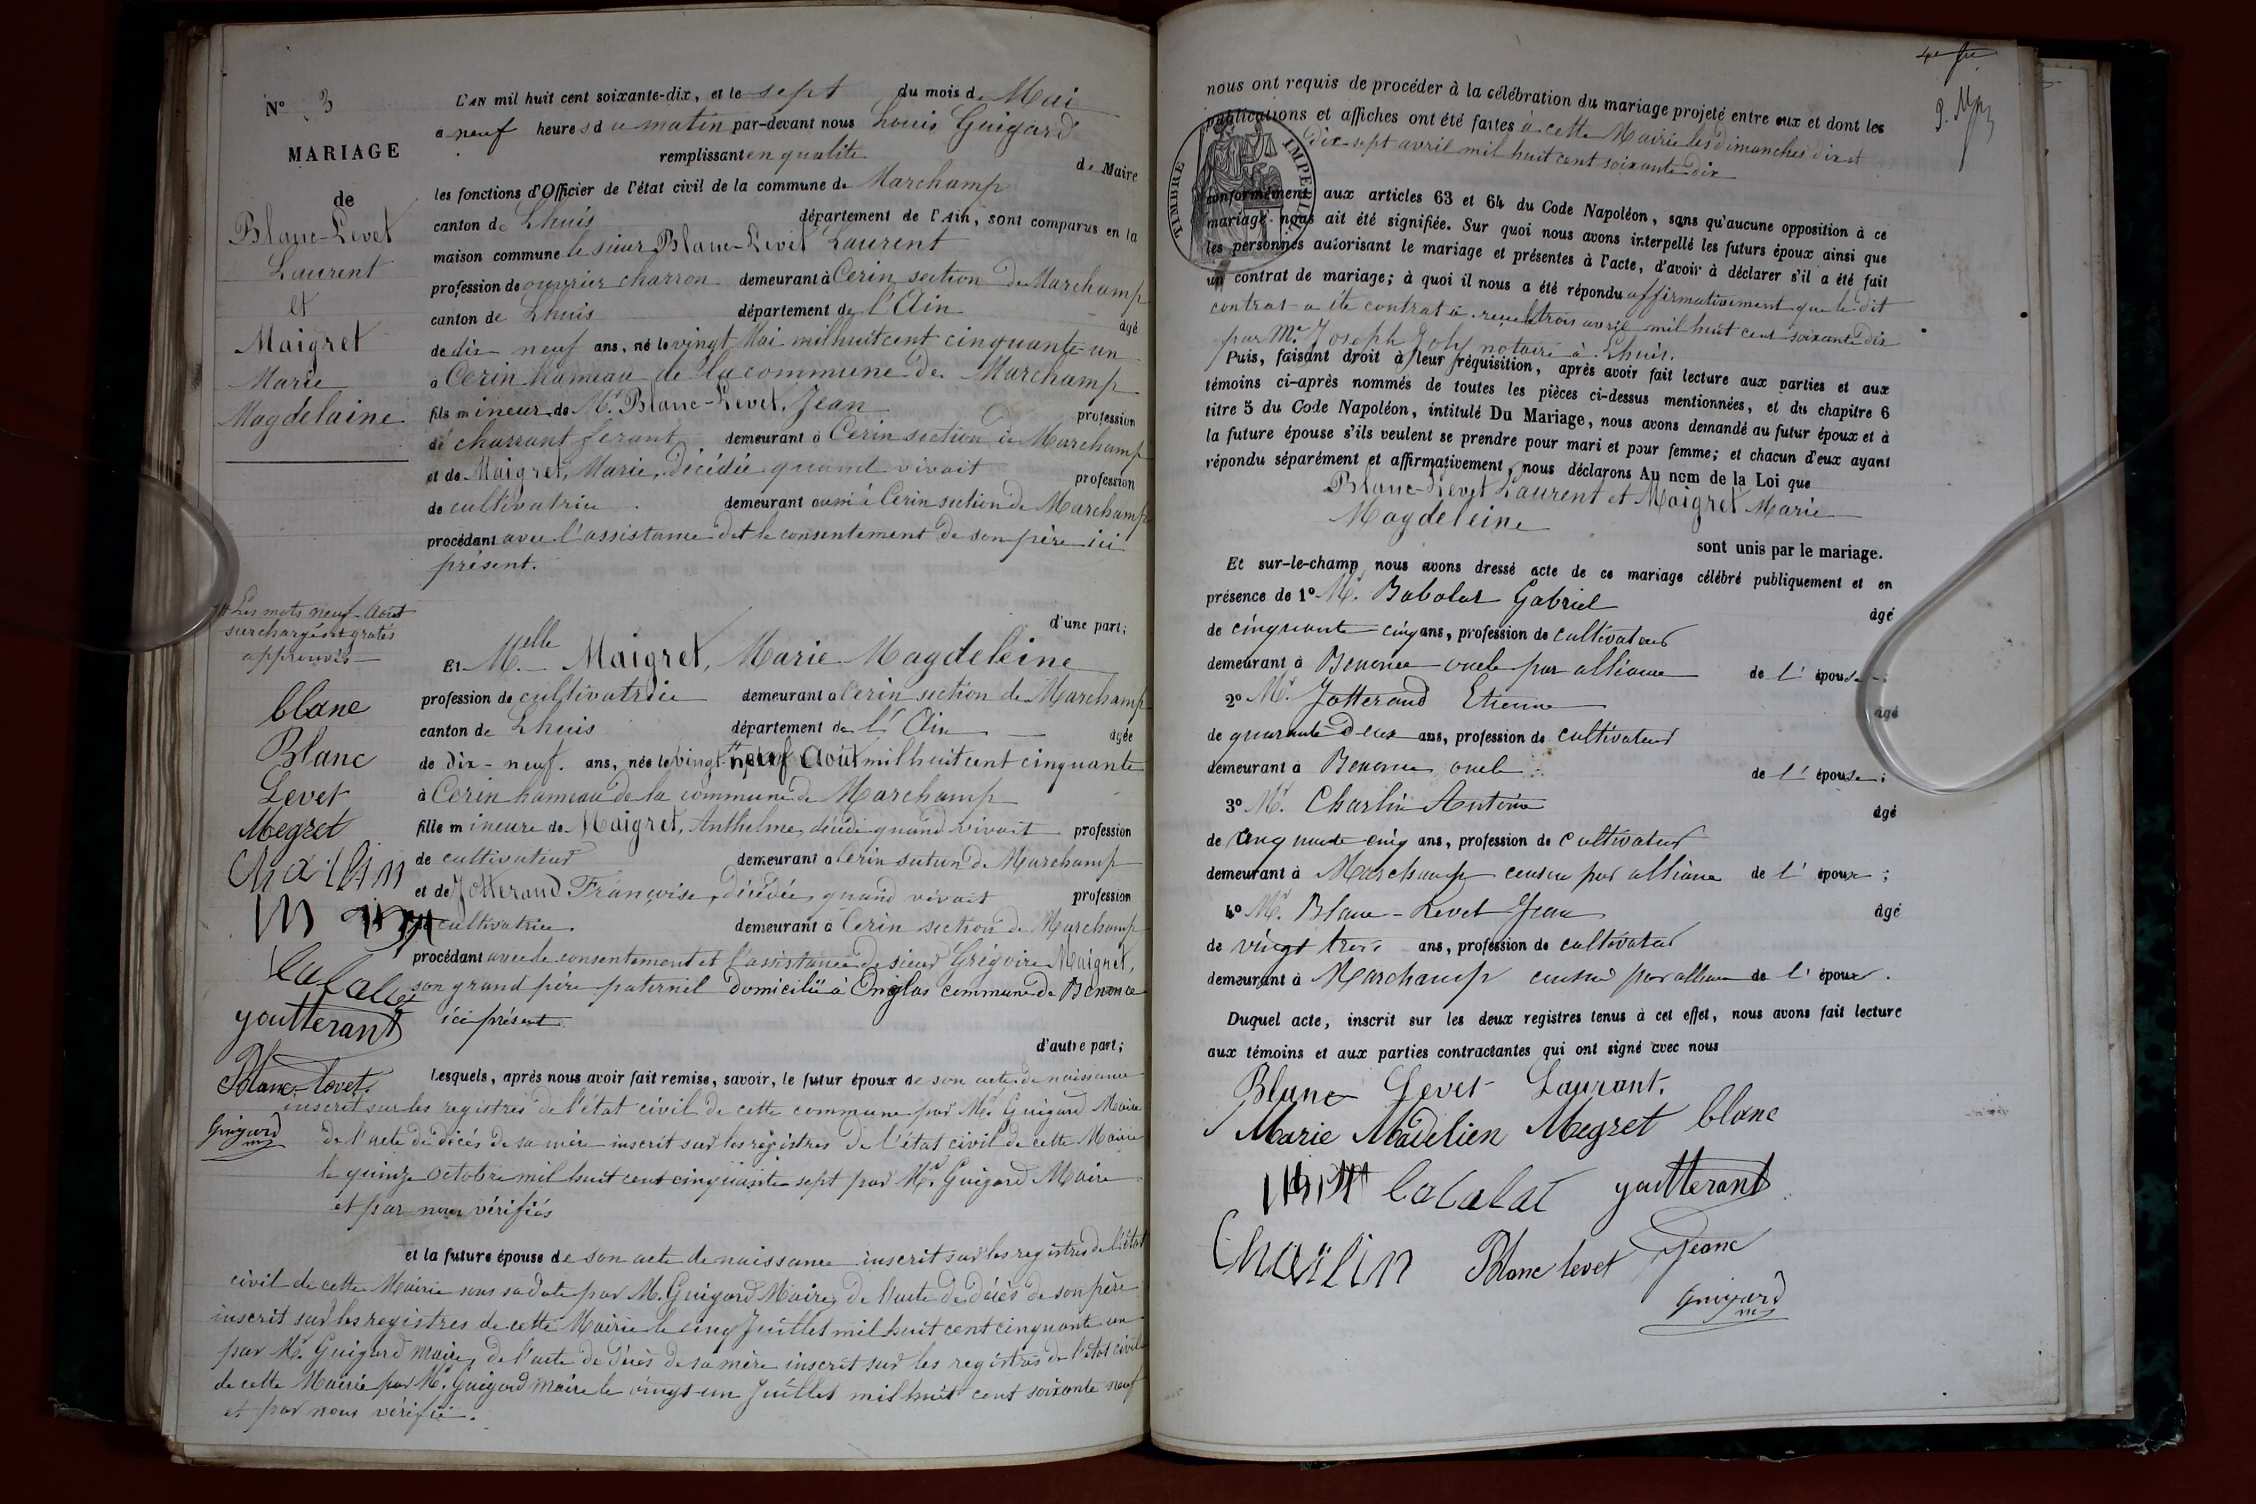 N° 3
MARIAGE
de
Blanc-Levet
Laurent
et
Maigret
Marie
Magdelaine
L'AN mil huit cent soixante-dix, et le sept du mois de Mai
a neuf heures du matin par-devant nous Louis Guigard
remplissant en qualité de Maire
les fonctions d'Officier de l'état civil de la commune de Marchamp
canton de Lhuis département de l'Ain, sont comparus en la
maison commune le sieur Blanc-Levet Laurent
profession de ouvrier charron demeurant à Cerin section de Marchamp
canton de Lhuis département de l'Ain âgé
de dix neuf ans, né le vingt Mai mil huit cent cinquante-un
à Cerin hameau de la commune de Marchamp
fils mineur de Mr. Blanc-Levet, Jean profession
de charront ferant demeurant à Cerin section de Marchamp
et de Maigret, Marie, décédée quand vivait profession
de cultivatrice demeurant à Cerin section de Marchamp
procédant avec l'assistance et le consentement de son père ici
présent.
d'une part;
Les mots neuf-Août
surchargés et gratés
approuvés
blanc
Blanc
Levet
Megret
Charlin
Cabalat
youtterant
Blanc-levet
Guigard
Et Melle Maigret, Marie Magdeleine
profession de cultivatrice demeurant à Cerin section de Marchamp
canton de Lhuis département de l'Ain âgée
de Dix-neuf. ans, née le vingt-neuf Août mil huit cent cinquante
à Cerin hameau de la commune de Marchamp
fille mineure de Maigret, Anthelme, décédé quand vivait profession
de cultivateur demeurant à Cerin section de Marchamp
et de Jotterand Françoise, décédée quand vivait profession
de cultivatrice. demeurant à Cerin section de Marchamp
procédant avec le consentement et l'assistance de sieur Grégoire Maigret,
son grand père paternel domicilié à Onglas commune de Benonce
ici présent
d'autre part;
Lesquels, après nous avoir fait remise, savoir, le futur époux de son acte de naissance
inscrit sur les registres de l'état civil de cette commune par Mr. Guigard Maire
de l'acte de décès de sa mère inscrit sur les régistres de l'état civil de cette Mairie
le quinze Octobre mil huit cent cinquante sept par Mr. Guigard Maire
et par nous vérifiés
et la future épouse de son acte de naissance inscrit sur les registres de l'état
civil de cette Mairie sous sa date par M. Guigard Maire, de l'acte de décès de son père
inscrit sur les registres de cette Mairie le cinq Juillet mil huit cent cinquante un
par Mr. Guigard Maire, de l'acte de décès de sa mère inscrit sur les registres de l'état civil
de cette Mairie par Mr. Guigard Maire le vingt-un Juillet mil huit cent soixante neuf
et par nous vérifié.
nous ont requis de procéder à la célébration du mariage projeté entre eux et dont les
publications et affiches ont été faites à cette Mairie les dimanches dix et
dix-sept avril mil huit cent soixante dix
TIMBRE IMPÉRIAL
conformément aux articles 63 et 64 du Code Napoléon, sans qu'aucune opposition à ce
mariage nous ait été signifiée. Sur quoi nous avons interpellé les futurs époux ainsi que
les personnes autorisant le mariage et présentes à l'acte, d'avoir à déclarer s'il a été fait
un contrat de mariage; à quoi il nous a été répondu affirmativement que le dit
contrat a été contrat a reçu le trois avril mil huit cent soixante dix
par Me. Joseph Joly notaire à Lhuis.
Puis, faisant droit à leur réquisition, après avoir fait lecture aux parties et aux
témoins ci-après nommés de toutes les pièces ci-dessus mentionnées, et du chapitre 6
titre 5 du Code Napoléon, intitulé Du Mariage, nous avons demandé au futur époux et à
la future épouse s'ils veulent se prendre pour mari et pour femme; et chacun d'eux ayant
répondu séparément et affirmativement, nous déclarons Au nom de la Loi que
Blanc-Levet Laurent et Maigret Marie
Magdeleine
sont unis par le mariage.
Et sur-le-champ nous avons dressé acte de ce mariage célébré publiquement et en
présence de 1° Mr. Babolat Gabriel âgé
de cinquante cinq ans, profession de cultivateur
demeurant à Benonce oncle par alliance de l'épouse;
2° Mr. Jotterand Etienne âgé
de quarante deux ans, profession de cultivateur
demeurant à Benonce oncle de l'épouse;
3° Mr. Charlin Antoine âgé
de cinquante cinq ans, profession de cultivateur
demeurant à Marchamp cousin par alliance de l'époux;
4° Mr. Blanc-Levet Jean âgé
de vingt trois ans, profession de cultivateur
demeurant à Marchamp cousin par alliance de l'époux.
Duquel acte, inscrit sur les deux registres tenus à cet effet, nous avons fait lecture
aux témoins et aux parties contractantes qui ont signé avec nous
Blanc Levet Laurant.
Marie Madelien Megret blanc
Cabalat youtterant
Charlin Blanc levet Jeanc
Guigard